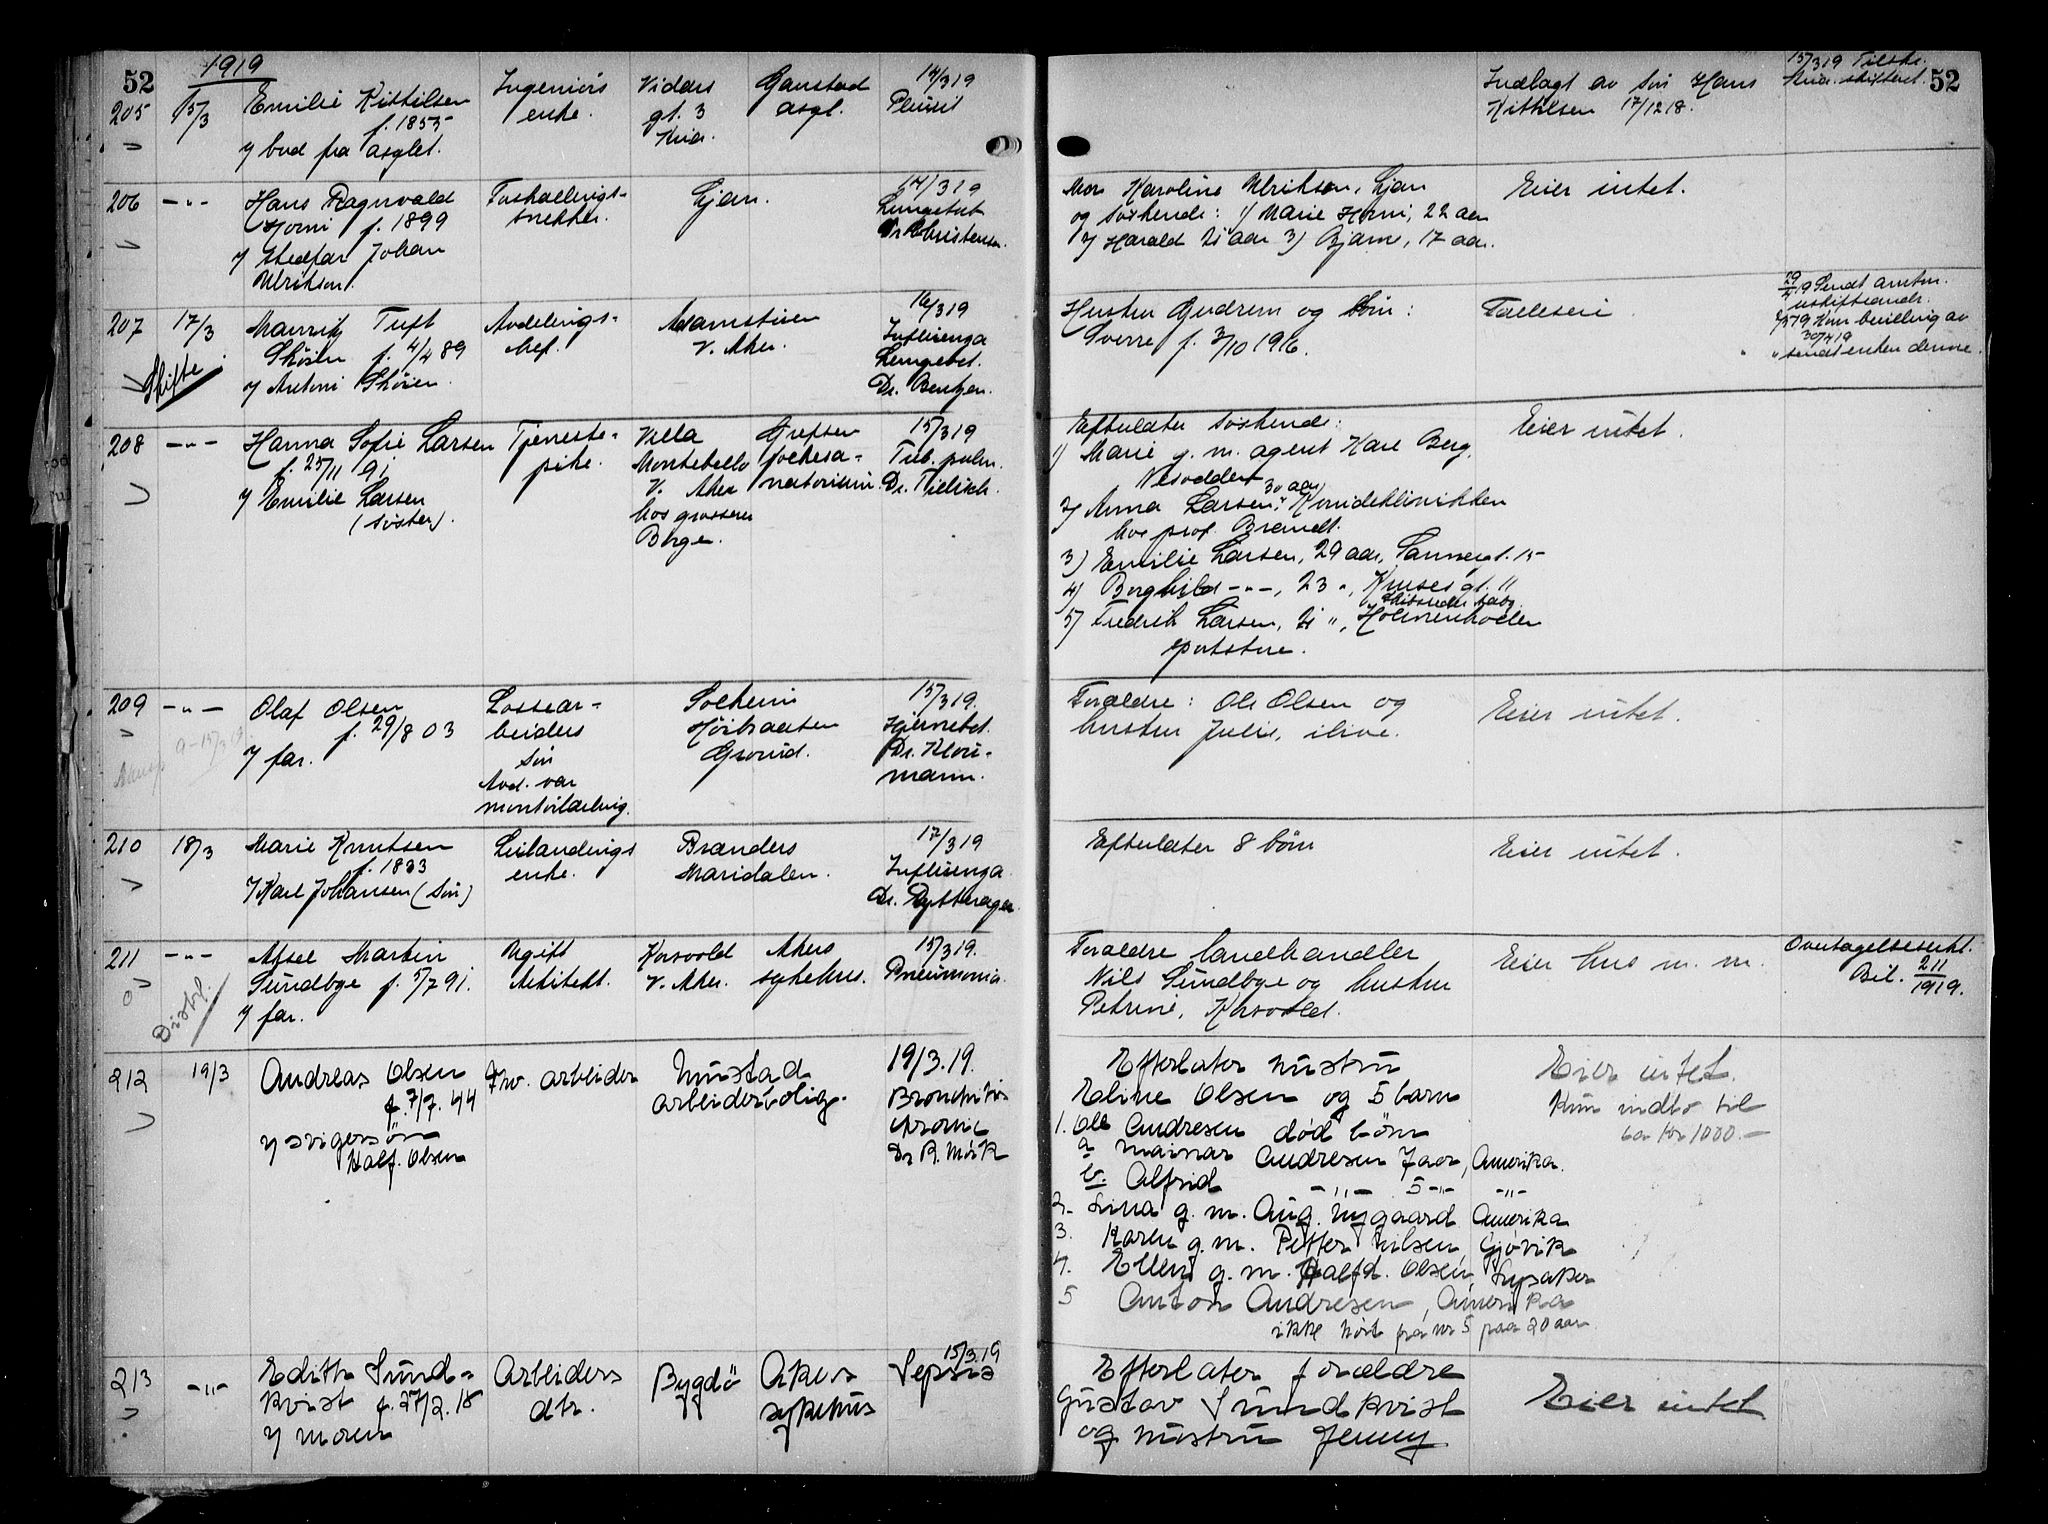 52
1919
205
15/3
Emilie Kittilsen
f. 1855
v/ bud fra asylet.
Ingeniørs
enke.
Vidars
gt. 3
Kria.
Gaustad
asyl.
14/3 19
Pleurit
Indlagt av søn Hans
Kittilsen 17/12 18.
15/3 19 Tilstr.
Kria. skifteret.
52
206
-"-
Hans Ragnvald
Horni f. 1899
v/ Stedfar Johan
Ulriksen.
snekker.
Ljan.
14/3 19
Lungebet
Dr Christensen.
Mor Karoline Ulriksen, Ljan
og søskende: 1) Marie Horni, 22 aar
2) Harald 21 aar 3) Bjarne, 17 aar.
Eier intet.
207
17/3
Skifte
Tuft
Skøien f. 4/4 89
v/ Antoni Skøien.
Avdelings-
chef.
V. Aker.
16/3 19
Influenza
Lungebet.
Dr. Bentzen.
Hustru Gudrun og søn:
Sverre f. 3/10 1916.
Fælleseie
29/4 19 Sendt amtm.
uskifteandr.
7/5 19 Kom bevilling av
30/4 19
" sendt enken denne.
208
-"-
Hanna Sofie Larsen
f. 25/11 91
v/ Emilie Larsen
(søster).
Tjeneste-
pike.
Villa
Montebello
V. Aker
hos grosserer
Berge.
Grefsen
folkesa-
natorium.
15/3 19
Tub. pulm.
Dr. Tillisch.
Efterlater søskende:
1) Marie g. m. agent Karl Berg,
Nesodden
2) Anna Larsen, 30 aar, Kvindeklinikken
hos prof. Brandt.
3) Emilie Larsen, 29 aar, Sannergt. 15
4) Borghild -"-, 23 ", Kruses gt. 11
5) Fredrik Larsen, 21 ", Holmenkollen
sportstue.
Eier intet.
209
-"-
Olaf Olsen
f. 29/8 03
v/ far.
Lossear-
beiders
søn
Avd. var
Solheim
Høibraaten
Grorud.
15/3 19.
Hjernebet.
Dr. Klou-
mann.
Forældre: Ole Olsen og
hustru Julie, ilive.
Eier intet.
210
18/3
Marie Knutsen
f. 1833
v/ Karl Johansen (søn)
Leilændings
enke.
Brænders
Maridalen.
17/3 19
Influenza.
Dr. Rytterager.
Efterlater 8 børn
Eier intet.
211
-"-
Distr.
Aksel Martin
Sundbye f. 5/7 91.
v/ far.
Ugift
Arkitekt.
Korsvold
V. Aker.
Akers
sykehus.
15/3 19.
Pneumonia.
Forældre landhandler
Nils Sundbye og hustru
Petrine, Korsvold.
Eier hus m. m.
Overtagelseserkl.
Bil. 211/1919.
212
19/3
Andreas Olsen
f. 7/7. 44
v/ svigersøn
Half. Olsen
Fhv. arbeider
Mustad
arbeiderbolig.
19/3.19.
Bronchitis
chronic
Dr R. Mørk
Efterlater hustru
Eline Olsen og 5 barn
1. Ole Andresen død børn
a Mainar Andresen 7 aar, Amerika.
b. Alfrid -"- 5 -"- -"-
2. Lina g. m. Aug. Nygaard Amerika
3. Karen g. m. Petter Nilsen, Gjøvik
4. Ellen g. m. Halfd. Olsen, Lysaker
5 Anton Andresen, Amerika
ikke hørt fra nr 5 paa 20 aar.
Eier intet.
Kun indbo til
ca. kr 1000.-
213
-"-
Edith Sund-
kvist f. 27/2. 18
v/ moren
Arbeiders
dtr.
Bygdö
Akers
sykehus
15/3.19
Sepsis
Efterlater forældre
Gustav Sundkvist
og hustru Jenny
Eier intet